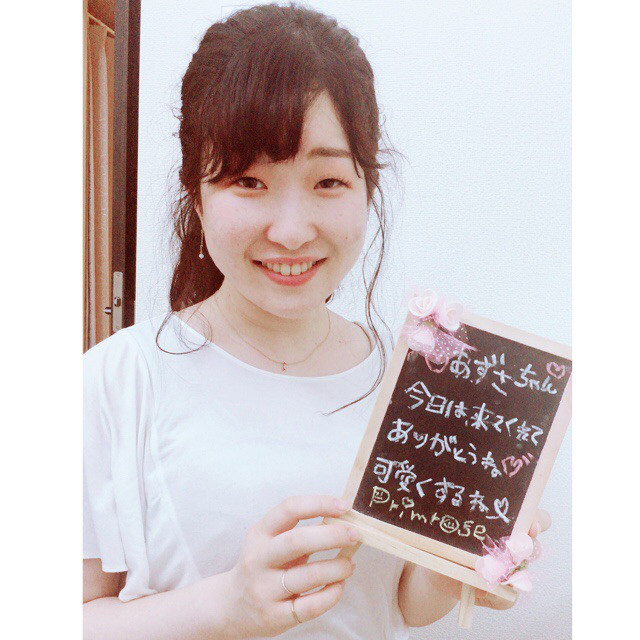 あずさちゃん♡
今日は、来てくれて
ありがとうね♡
可愛くするね♡
Primrose